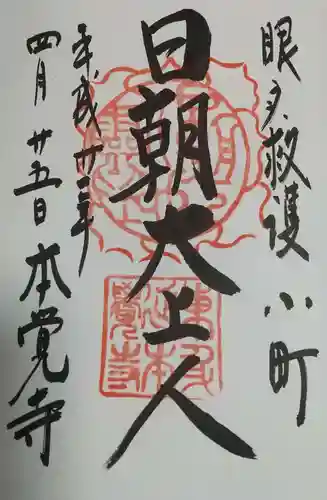 眼守救護 小町
日朝大上人
平成廿三年
四月廿五日 本覚寺